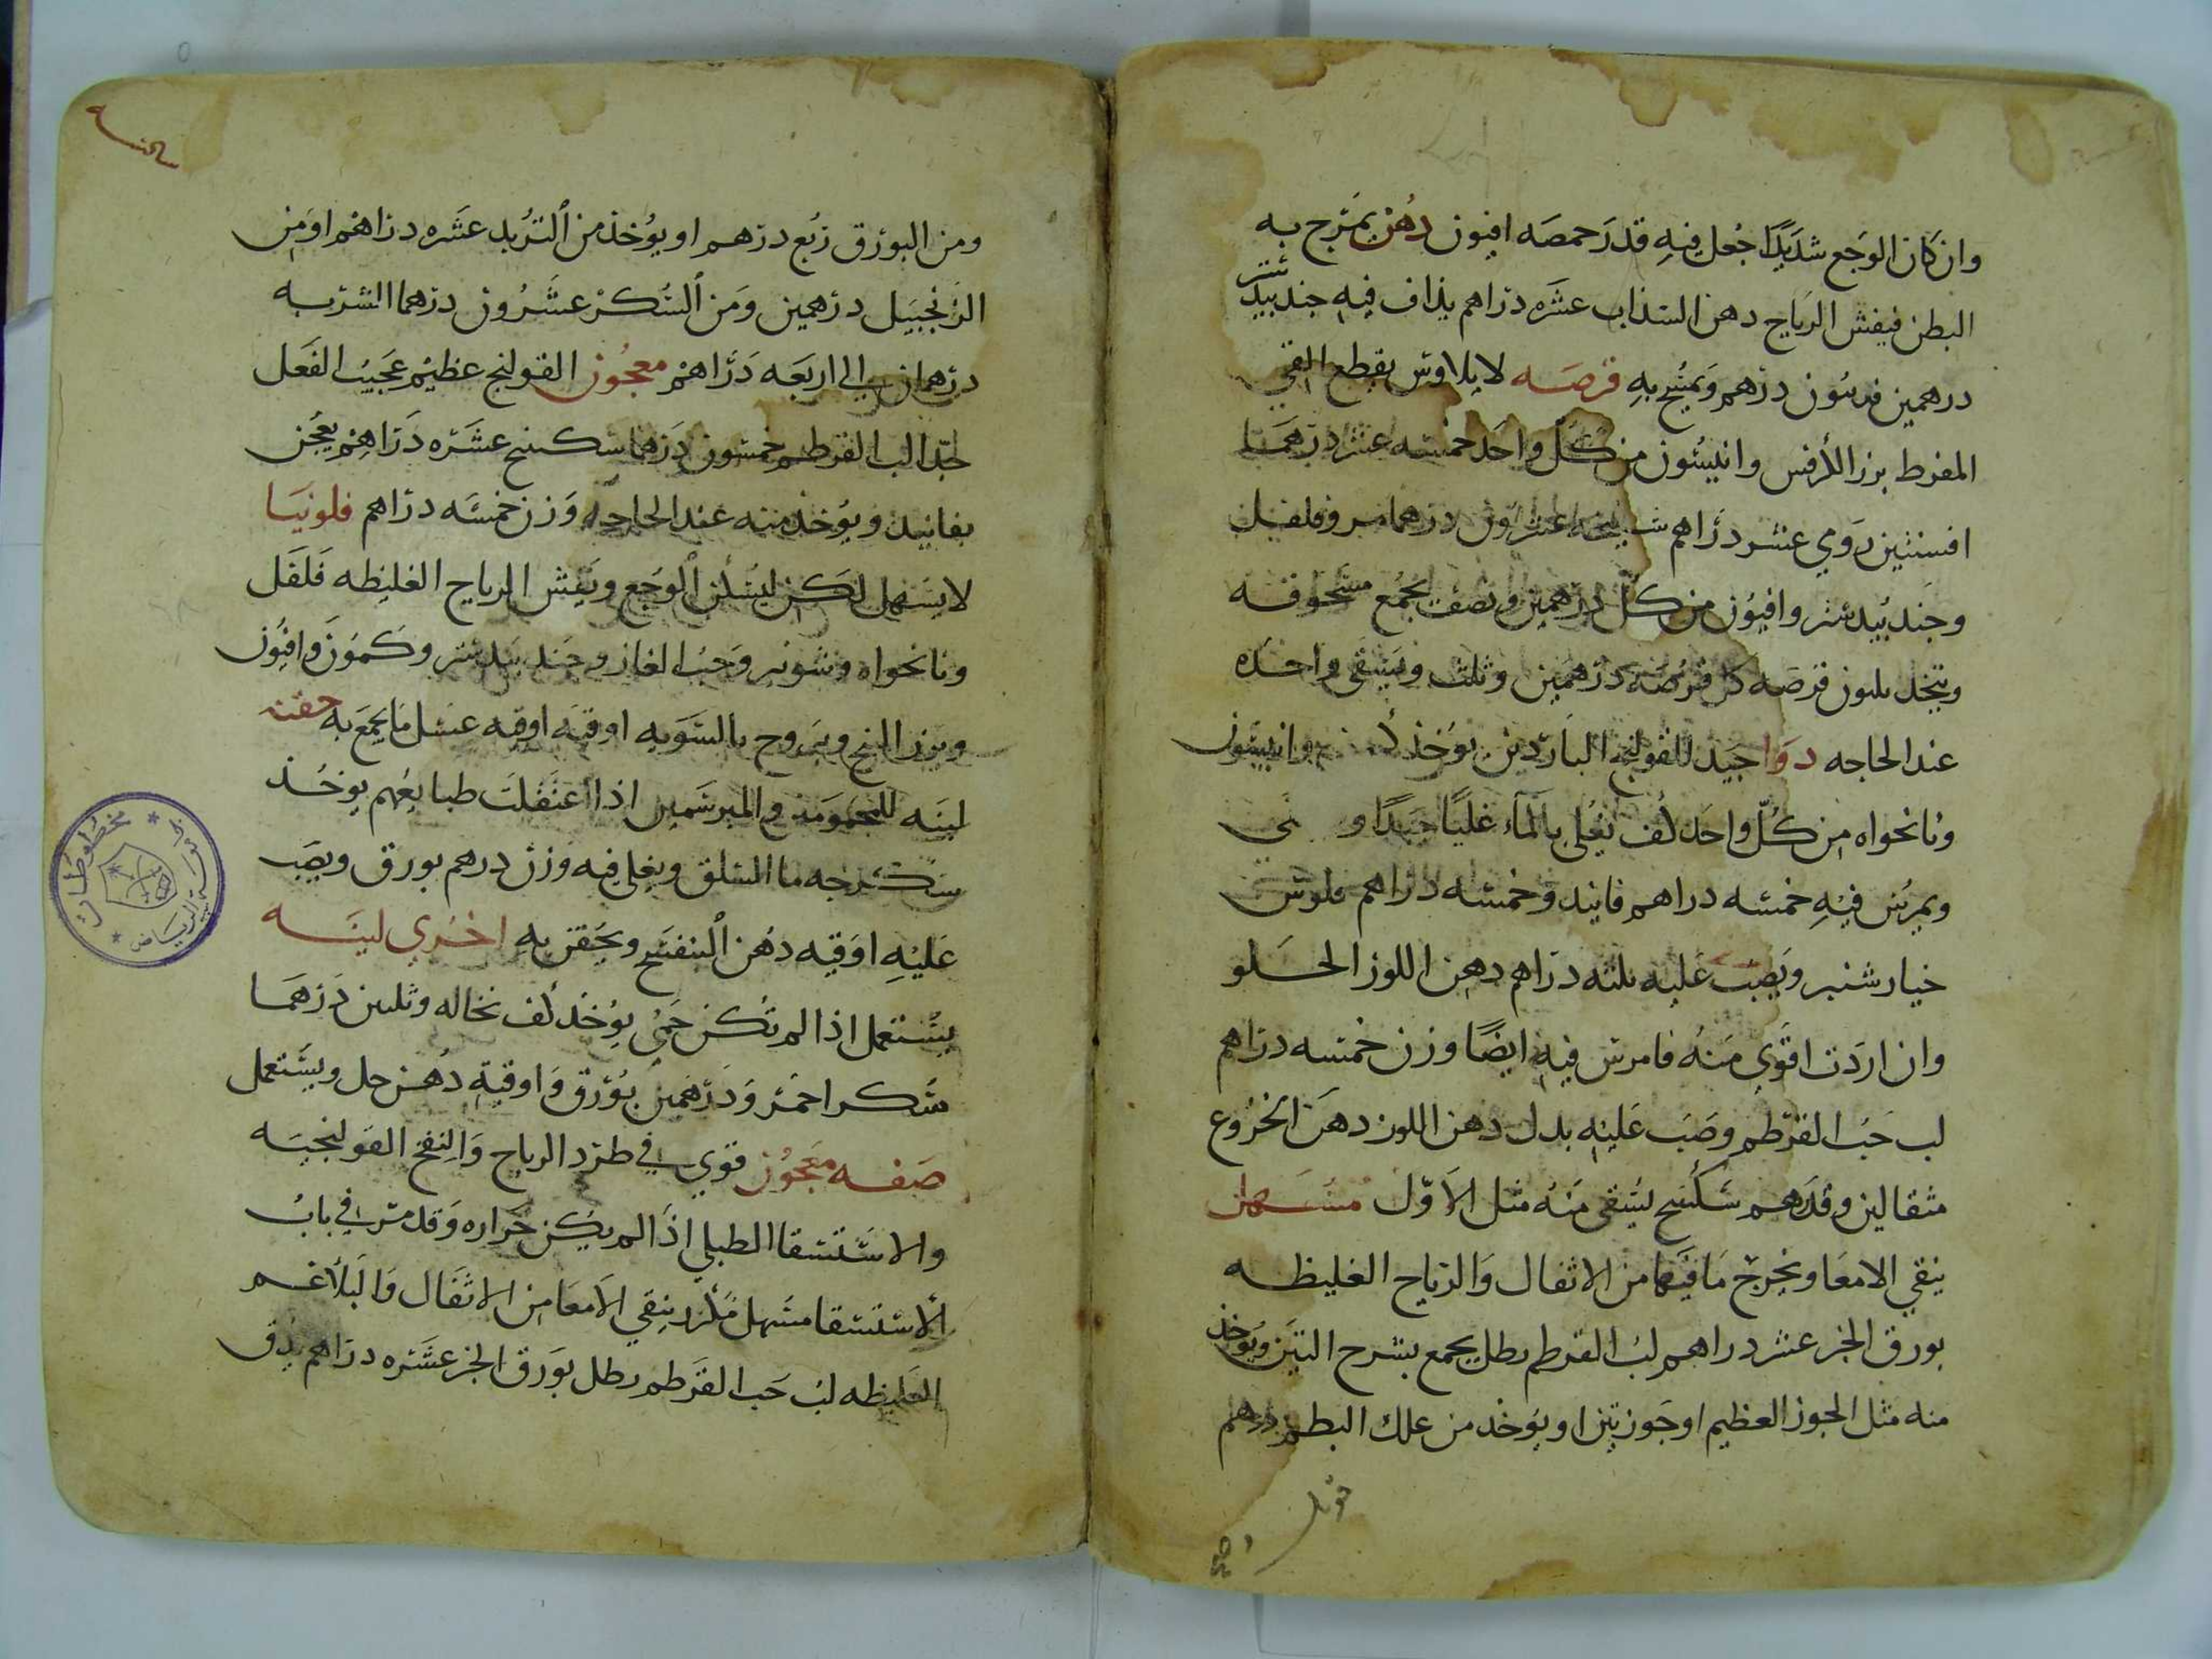 وان كان الوجع شديدًا جُعل فيهِ قدرَ حمصَه افيون دُهن يمَرّج به
البطن فيفش الرياح دهن السذاب عشَره دراهم يذاف فيهِ جندبيدستر
درهمين فربيون درهم وَيمسُح بهِ قرصَه لايلاوس يقطع القي
المفرط بزر الكرفس وانيسُون من كلّ واحَد خمسَه عشر درهمَا
افسنتين رَومي عشر درَاهم سليخه عشرون درهما مر وفلفل
وجَندبُيدستر وافيوُن من كلّ درهمين ونصف يجمَع مسَحوقه
ويتخذ ثلثون قرصَه كل قرصَه درهمَين وثلث ويسَقى واحده
عند الحاجه دوَا جَيد للقولنج البَارد ين يوُخذ وانيسُون
ونانخواه مِن كُلّ واحَد كُف يغُلى بالمآء غليًا جيدًا و
ويمرُس فيهِ خمسَه دراهم فانيد وخمسَه درَاهم فلوس
خيارشنبر ويَصِب عَليه ثلثه درَاهم دهن اللوز الحلو
وان ارَدت اقوَى منهُ فامرس فيهِ ايضًا وزن خمسه درَاهم
لب حَبُ القرطم وصَب عَليهِ بدل دهن اللوز دهَن الخرُوع
مثقالين وقدَرهم سَكبَينج يسَقى منَهُ مثل الاَوّل مسُهل
ينقي الامعَا ويخرِجَ مَا فيَها من الاثفال وَالرَياح الغليظه
بورق الخبز عشر دراهم لبُ القرطم رطل يجمع بشرح التيَن ويوُخذ
منه مثل الجوز العظيم او جَوزتين او يوُخذ من علك البطم درهم
ومن البورَق ربُع درهم او يوُخذ من الترُبد عشَره درَاهم اومِن
الزَنجَبيَل درَهمين وَمن السُكرْ عشَرُون درهما الشربه
درهمان الى اربَعَه دَرَاهم معجُون القولنج عظيم عَجيبُ الفعَل
جّدا لب القرطم خمسَون دَرهما سَكبينج عشَرَه دَرَاهِم يعُجَن
بفانيد ويوُخذ منه عند الحَاجه وَزن خمسَه درَاهم فلونيَا
لايسَهل لكَن ليسكن الوجَع ويَفِش الرياح الغليظه فَلفَل
ونانخواه وشونير وَحَبُ الغار وجَندبيَدستر وكَموَن وَافيُون
وبزر البنج ويبَروح بالسَويه اوقيَه اوقيه عسَل مَا يجمَع به حقنه
لينَه للمحمومَين والمبرسَمين اذا اعتَقلتَ طبايعُهم يوخُذ
سَكُرجه ما السَلق ويغلى فيه وَزن درهم بورق ويصَب
عَليْهِ اوَقيه دهُن البنفسَج ويحَقن به اخُرى لينَه
يسَتعمل اذا لم تكُن حَمىُ يوُخَذ كف نخاله وثلثين دَرهمَا
سَكر احمَر وَدَرهمَين بوُرق وَاوقيه دُهن حل ويسَتعمل
صَفه معَجوُن قوي في طرَد الرياح وَالنِفخ القوَلنجيَه
والاسَتسَقا الطبلي اذَا لم يكَن حَرَاره وَقد مرّ في بابُ
الاستسَقا مسَهل مكرَر ينِقي الاَمعَا مِن الاثفَال وَالبَلاغم
الغَليظه لبُ حَب القرَطم رطل بوَرق الخبز عشَره درَاهم يدُق
مخطوطات